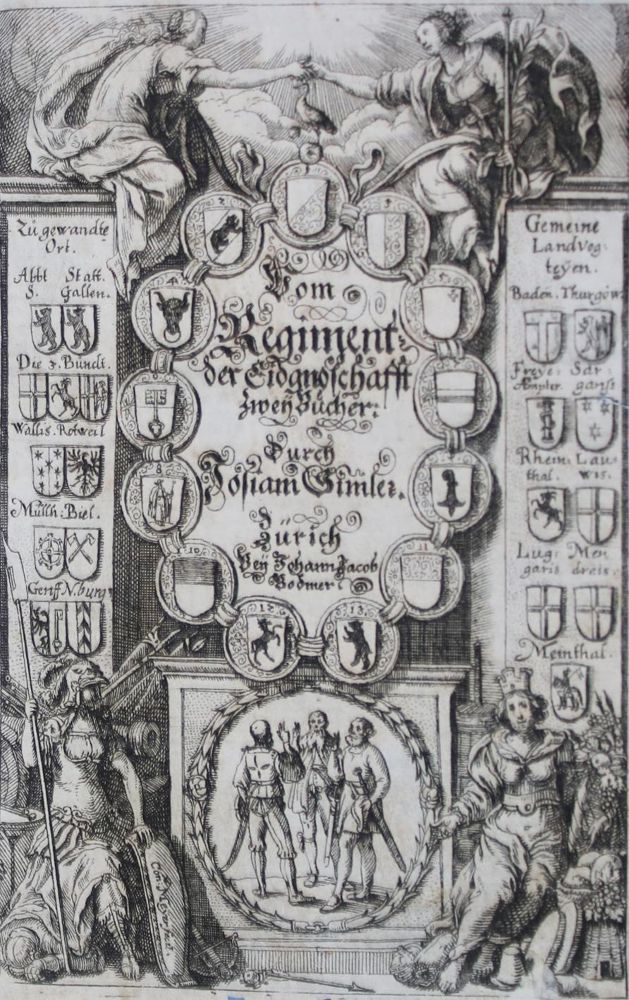 Zůgewandte
Ort.
Abbt Statt
S. Gallen.
Die 3. Bündt.
Wallis. Rotweil
Müllh. Biel.
Genff N.burg
Vom
Regiment
der Eidgnoschafft
zweÿ Bücher:
Durch
Josiam Simler.
Zürich
Beÿ Johann Jacob
Bodmer
Gemeine
Landvog-
teÿen.
Baden. Thurgöw.
Freye Sar-
Æmpter. ganß
Rhein- Lau-
thal. wis.
Lug- Men-
garis dreis.
Meinthal.
5
7
8
10
11
12
13